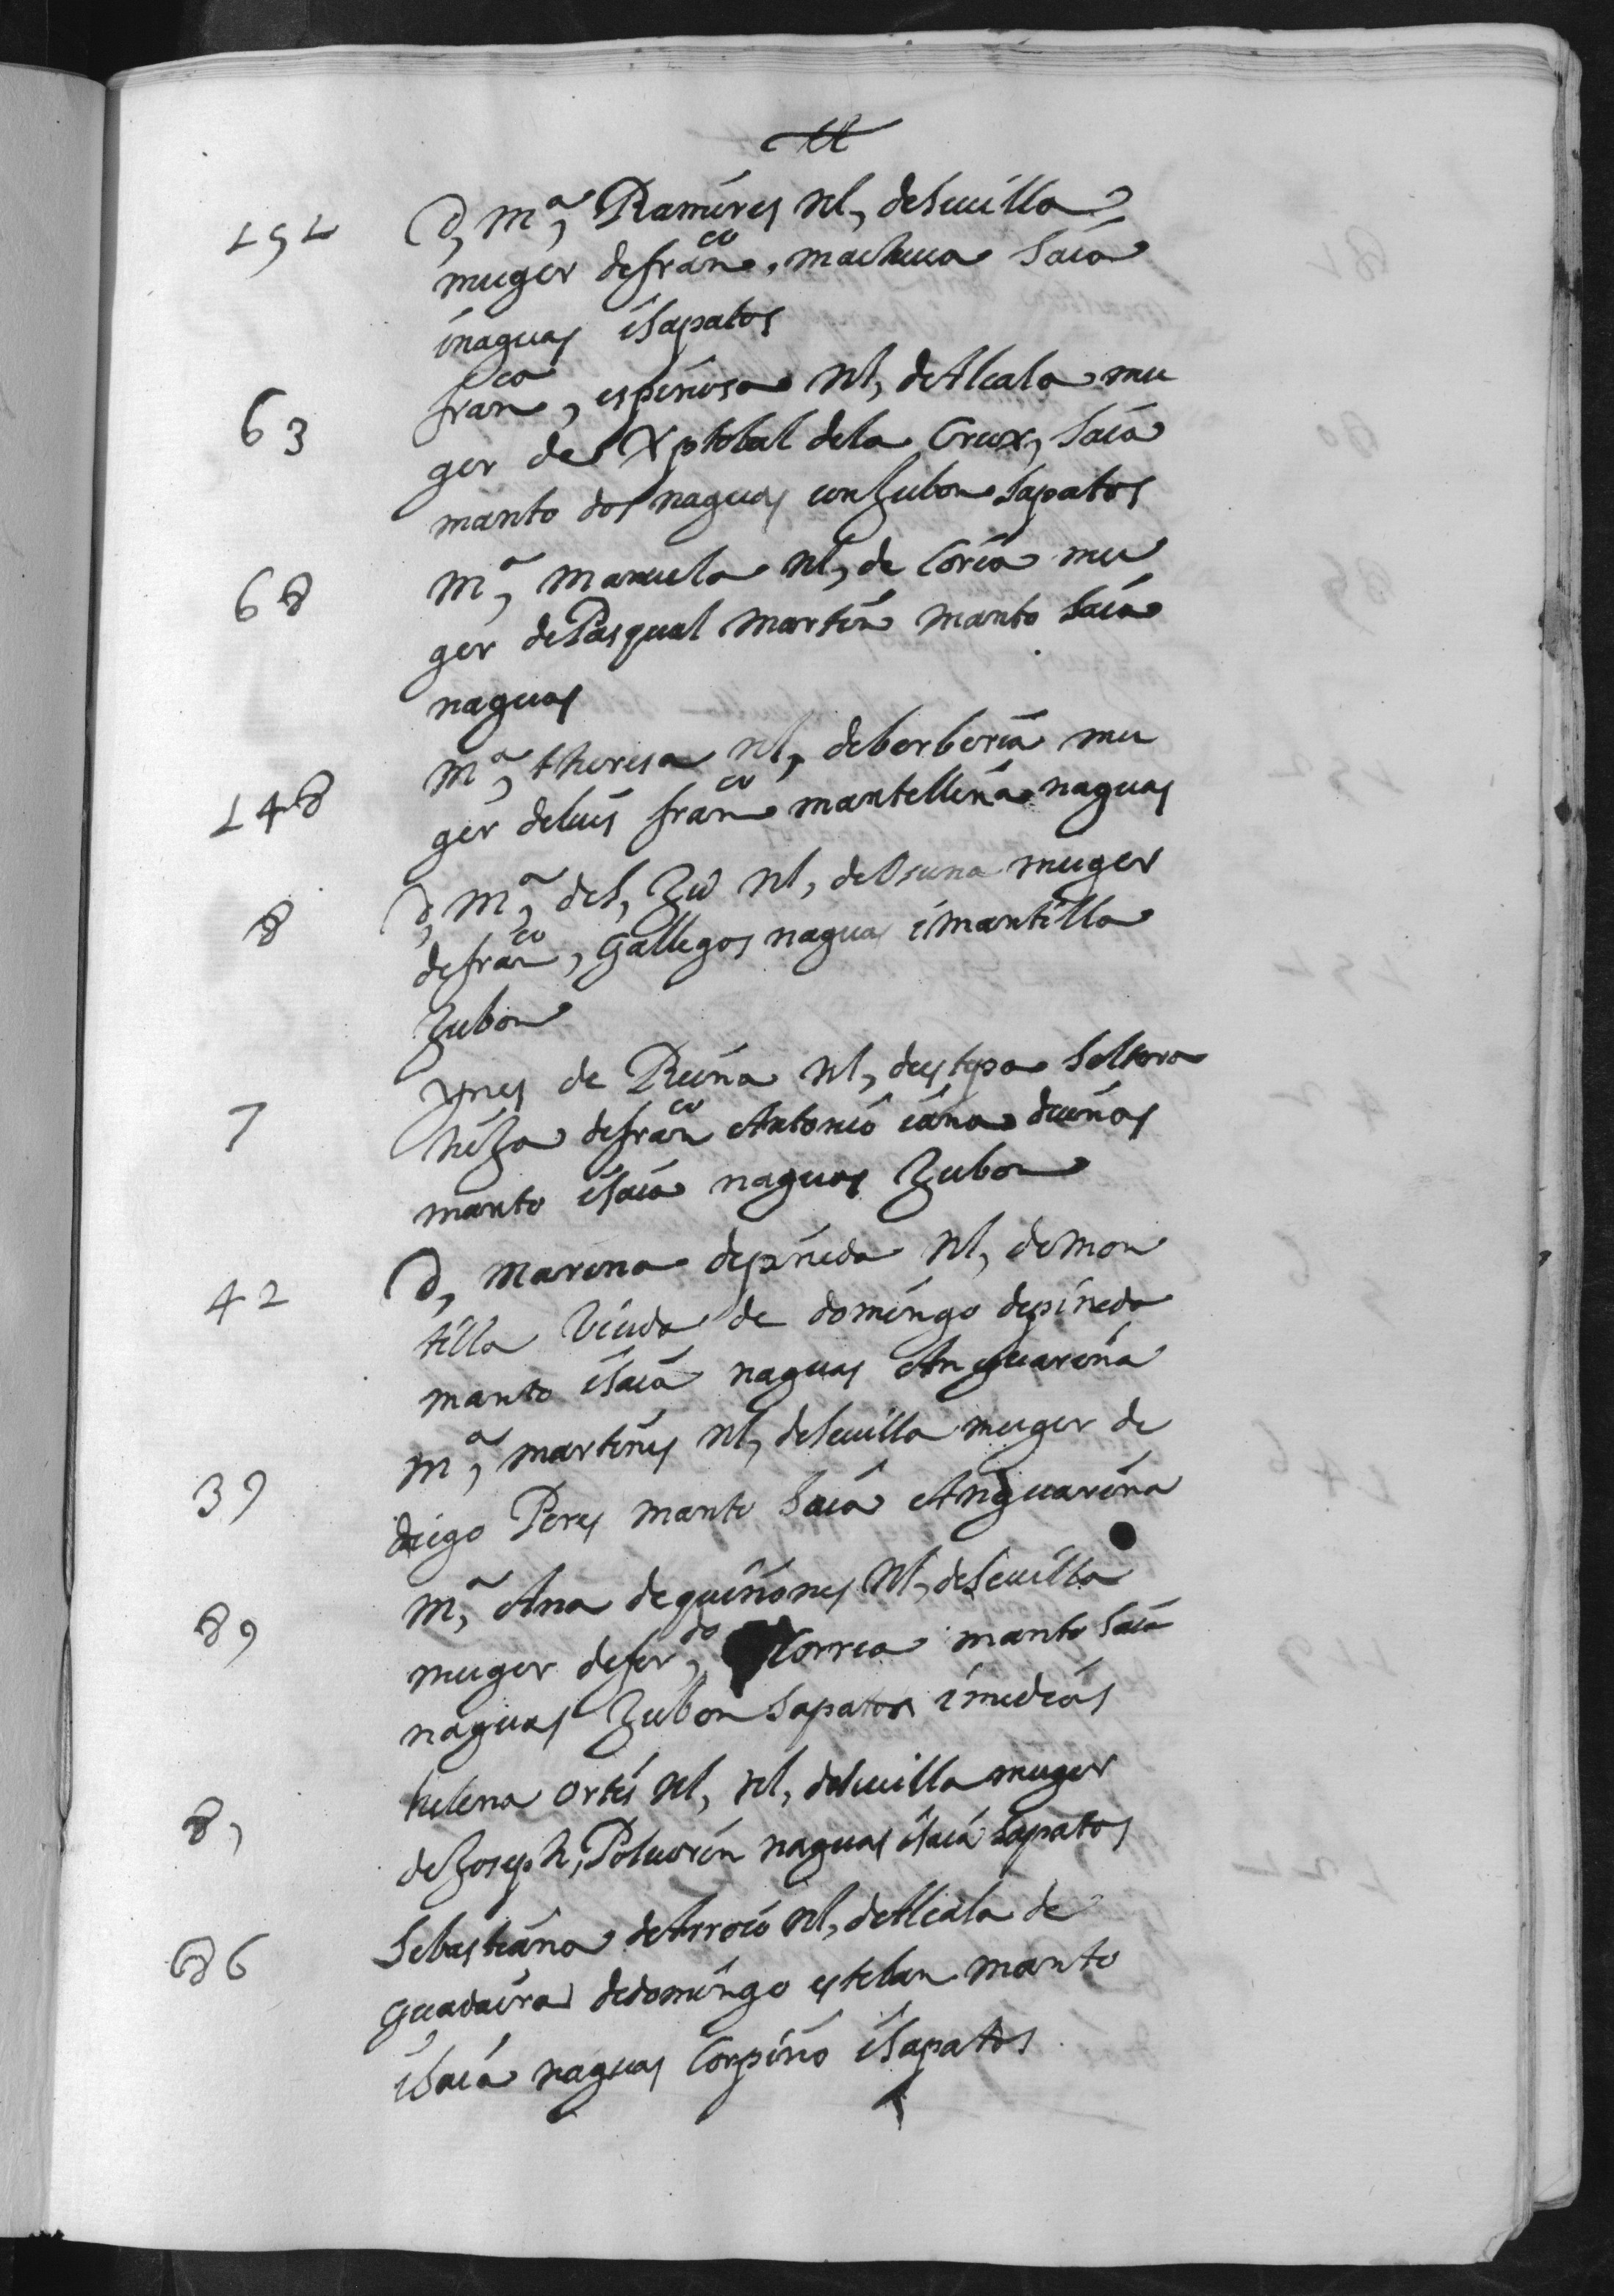 151 D, mª, Ramires nl, desevilla
muger defranco, machuca saia
inaguas isapatos
63 franca, espinosa nl, deAlcala mu
ger de Xptobal dela Crux, saia
manto dos naguas conJubon sapatos
68 mª, manuela nl, de Coria mu
ger dePasqual martin manto saia
naguas
148 mª, theresa nl, deberberia mu
ger deluis franco mantellina naguas
8 D, mª, del, nl, deOsuna muger
defranco, gallegos naguas imantilla
Jubon
7 ynes de Reina nl, destepa soltera
hiJa defranco Antonio iana dueñas
manto isaia naguas Jubon
42 D, marina depineda nl, demon
tilla viuda de domingo depineda
manto isaia naguas Anguarina
39 mª, martines nl, desevilla muger de
diego Peres manto saia Anguarina
89 mª, Ana dequiñones nl, desevilla
muger deferdo, Correa manto saia
naguas Jubon sapatos imedias
8, helena ortis nl, nl, desevilla muger
deJoseph, Poluorin naguas isaia sapatos
86 Sebastiana deArroio nl, deAlcala de
guadaira dedomingo esteban manto
isaia naguas Corpiño isapatos